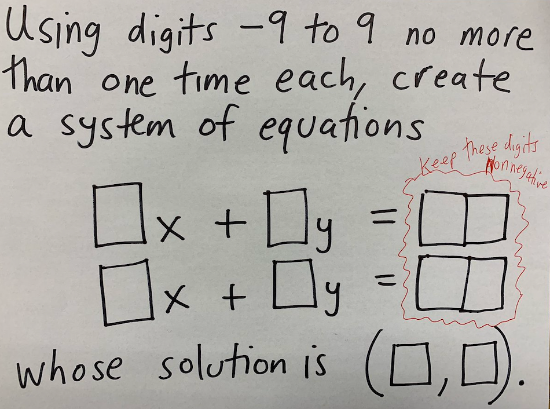 Using digits -9 to 9 no more
than one time each, create
a system of equations
Keep these digits
Nonnegative
□x + □y = □□
□x + □y = □□
whose solution is (□,□).